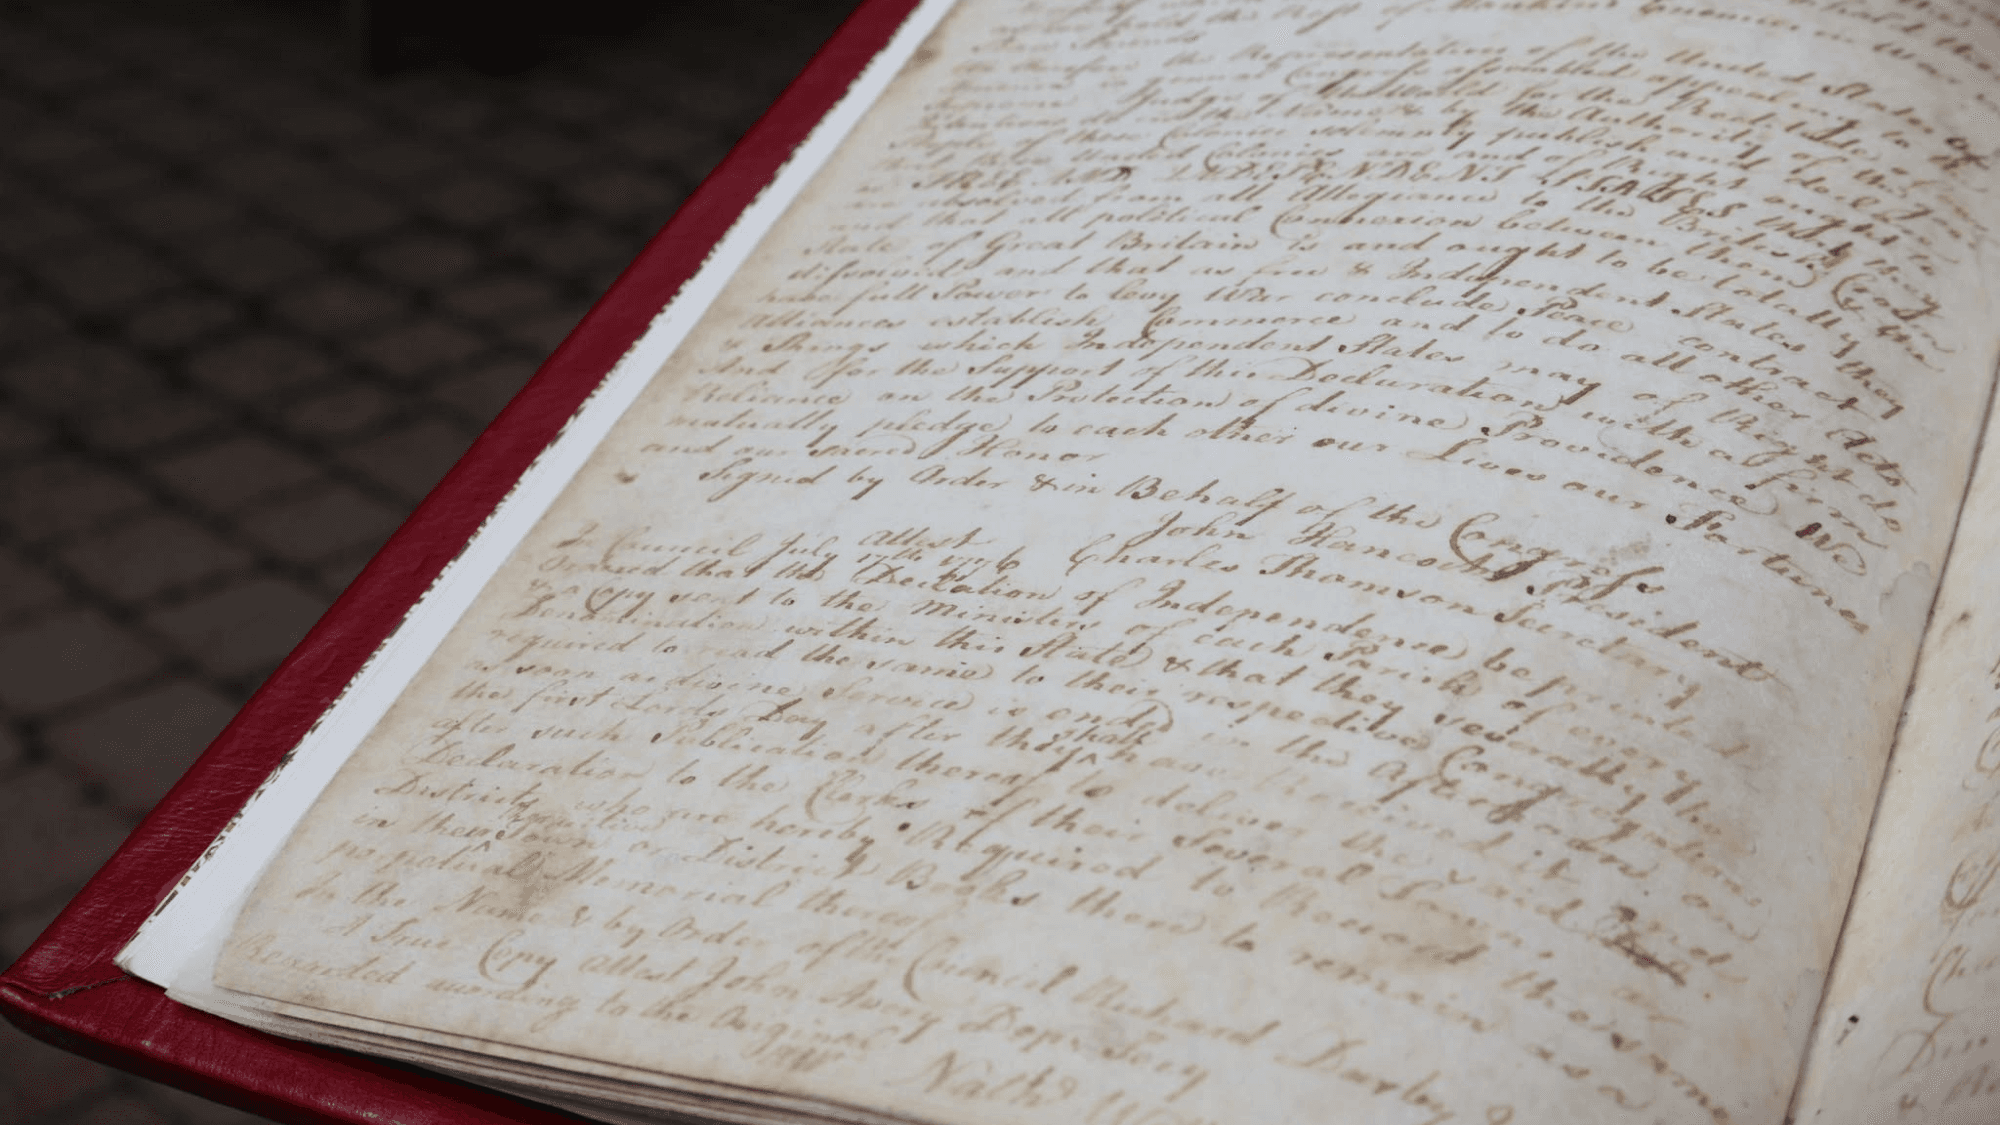 hold the rest of Mankind Enemies in War in
the Representatives of the United States of
general Congress assembled appealing to the
Supreme Judge of the World for the Rectitude of
Name & by the Authority of the
People of these Colonies solemnly publish and
that these United Colonies are and of Right ought to
FREE AND INDEPENDENT STATES that they
are absolved from all Allegiance to the British Crown
and that all political Connexion between them & the
State of Great Britain is and ought to be totally
dissolved and that as free & Independent States they
have full Power to levy War conclude Peace contract
Alliances establish Commerce and to do all other Acts
& Things which Independent States may of Right do
And for the Support of this Declaration with a firm
Reliance on the Protection of divine Providence We
mutually pledge to each other our Lives our Fortunes
and our sacred Honor
Signed by Order & in Behalf of the Congress
John Hancock President
Attest Charles Thomson Secretary
In Council July 17th 1776
Ordered that the Declaration of Independence be printed
& a Copy sent to the Ministers of each Parish of every
Denomination within this State & that they severally be
required to read the same to their respective Congregations
as soon as divine Service is ended in the Afternoon on
the first Lords Day after they shall have received it and
after such Publication thereof to deliver the said
Declaration to the Clerks of their several Towns or
Districts who are hereby Required to Record the same
in their respective Town or District Books there to remain as a
perpetual Memorial thereof
In the Name & by Order of the Council Richard Derby
A True Copy Attest John Avery Dep. Secy
Recorded according to the Original
Nathl